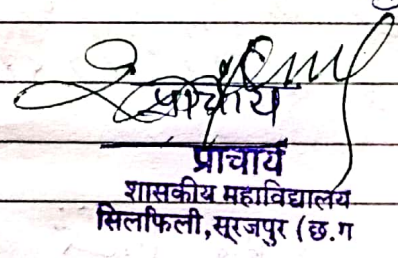 प्राचार्य
प्राचार्य
शासकीय महाविद्यालय
सिलफिली, सूरजपुर (छ.ग